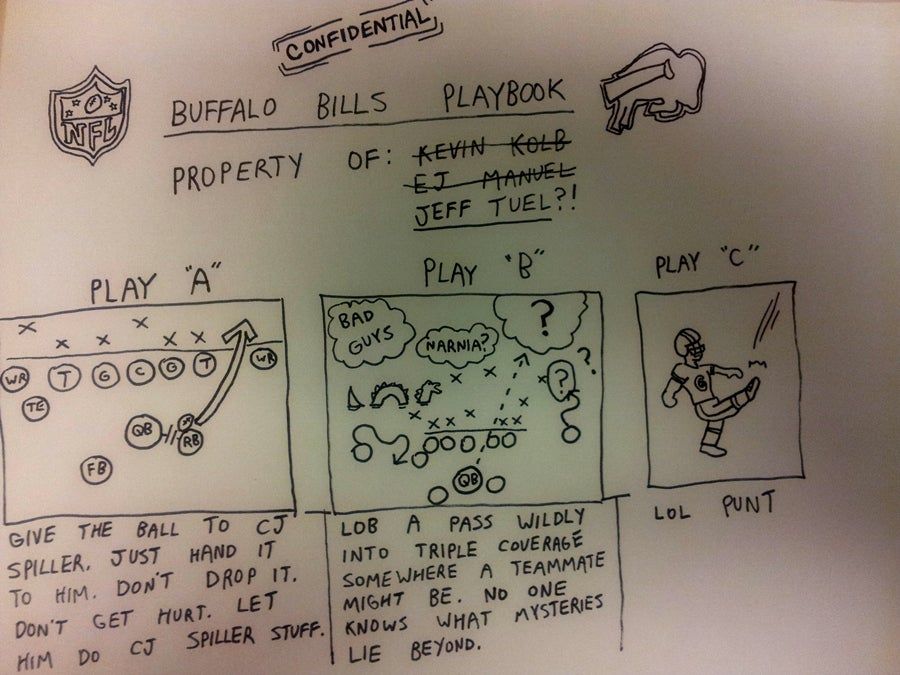 CONFIDENTIAL
NFL
BUFFALO BILLS PLAYBOOK
PROPERTY OF: KEVIN KOLB
EJ MANUEL
JEFF TUEL?!
PLAY "A"
X X X X X X
WR T G C G T WR
TE
QB RB
FB
GIVE THE BALL TO CJ
SPILLER. JUST HAND IT
TO HIM. DON'T DROP IT.
DON'T GET HURT. LET
HIM DO CJ SPILLER STUFF.
PLAY "B"
BAD
GUYS
NARNIA?
?
? ?
X X X
X X X X X X
QB
LOB A PASS WILDLY
INTO TRIPLE COVERAGE
SOMEWHERE A TEAMMATE
MIGHT BE. NO ONE
KNOWS WHAT MYSTERIES
LIE BEYOND.
PLAY "C"
LOL PUNT